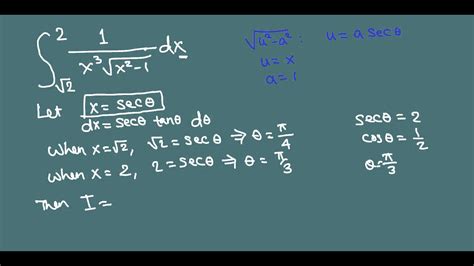 ∫_{√2}^{2} 1/(x³√(x²-1)) dx
√(u²-a²) : u = a secθ
u = x
a = 1
Let x = secθ
dx = secθ tanθ dθ
When x=√2, √2 = secθ ⇒ θ = π/4
When x = 2, 2 = secθ ⇒ θ = π/3
secθ = 2
cosθ = 1/2
θ = π/3
Then I =